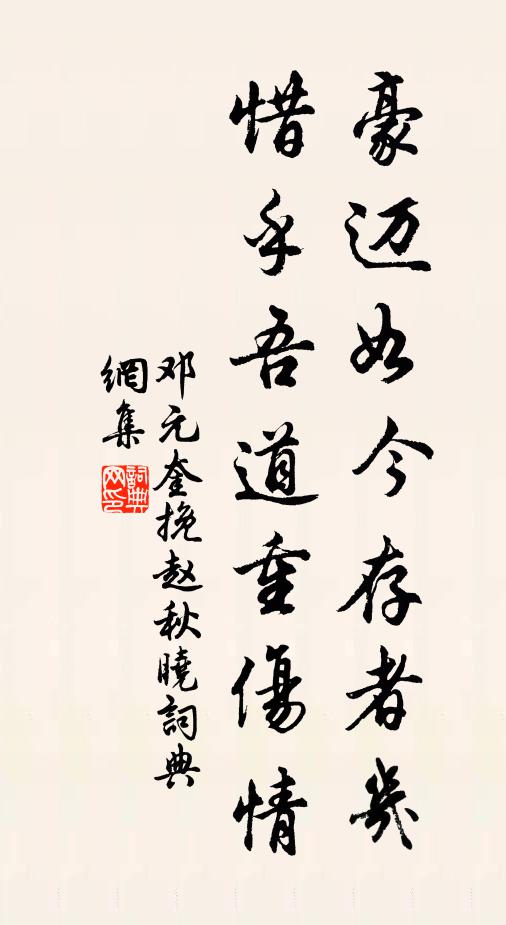 豪迈如今存者幾
惜乎吾道重傷情
邓元奎挽赵秋曉詞典
網集
詞典網印